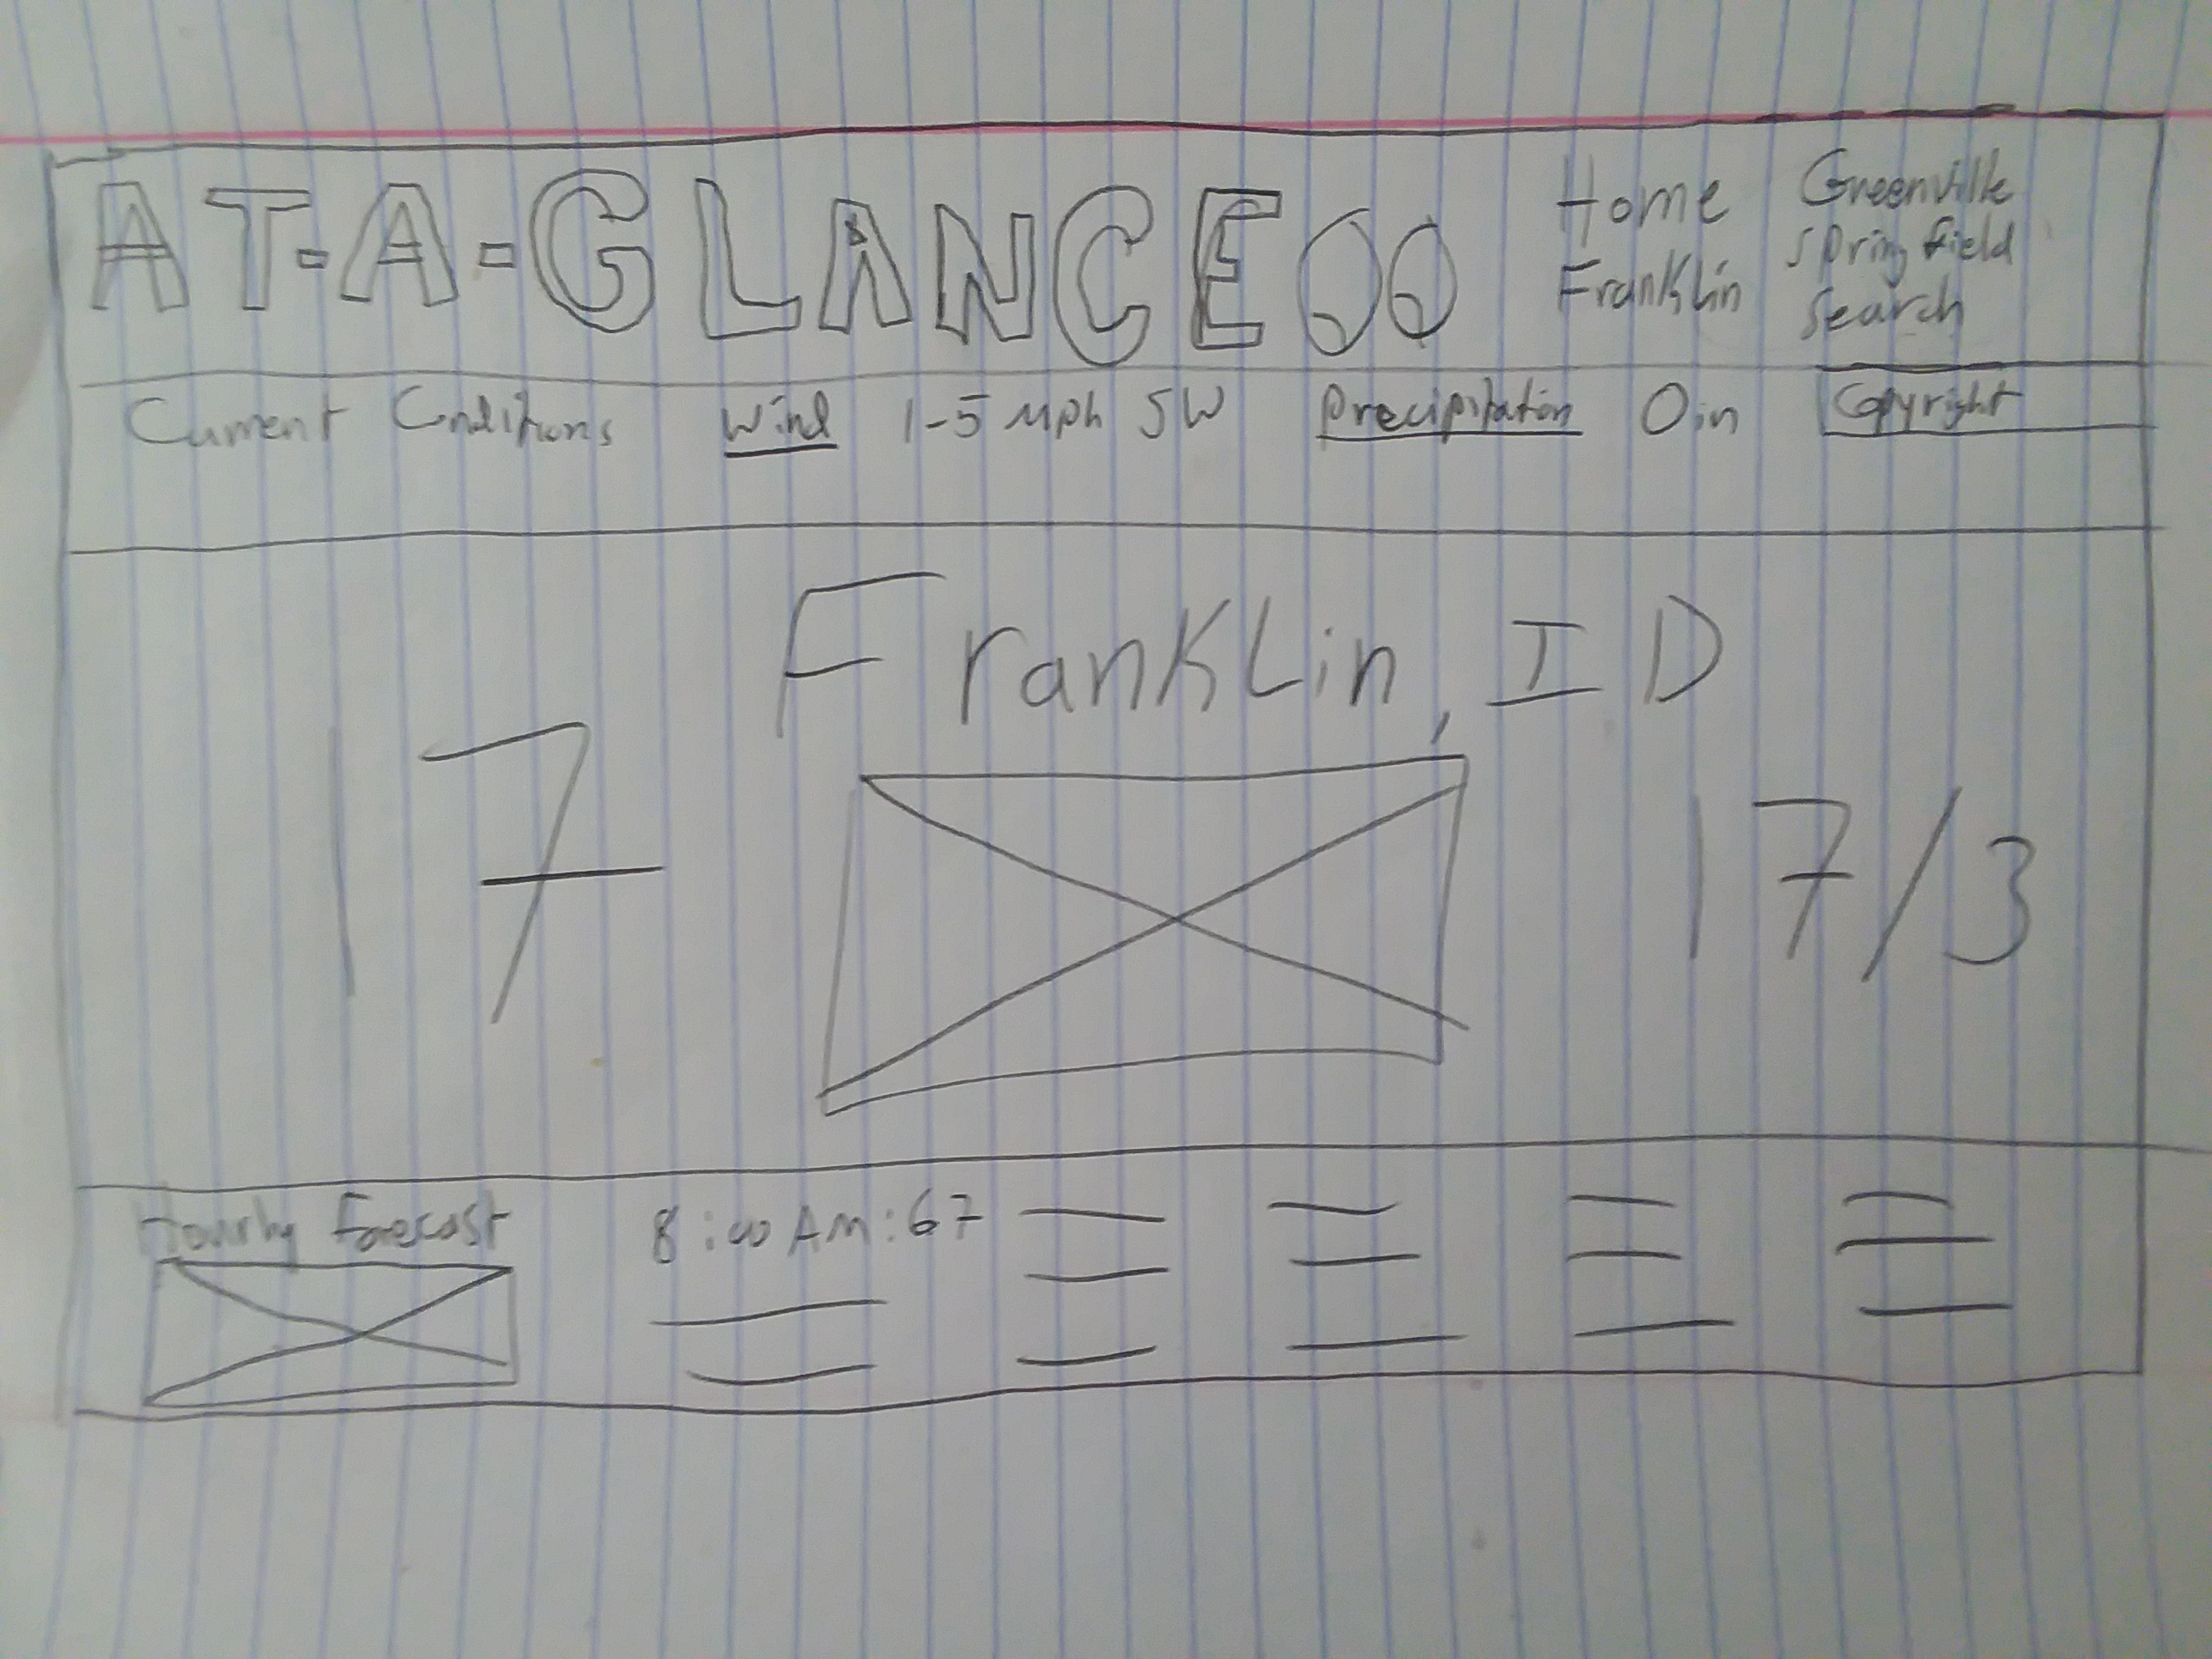 AT-A-GLANCE
Home Greenville
Franklin Springfield
Search
Current Conditions Wind 1-5 mph SW Precipitation 0in Copyright
Franklin, ID
17
17/3
Hourly Forecast 8:00 AM:67